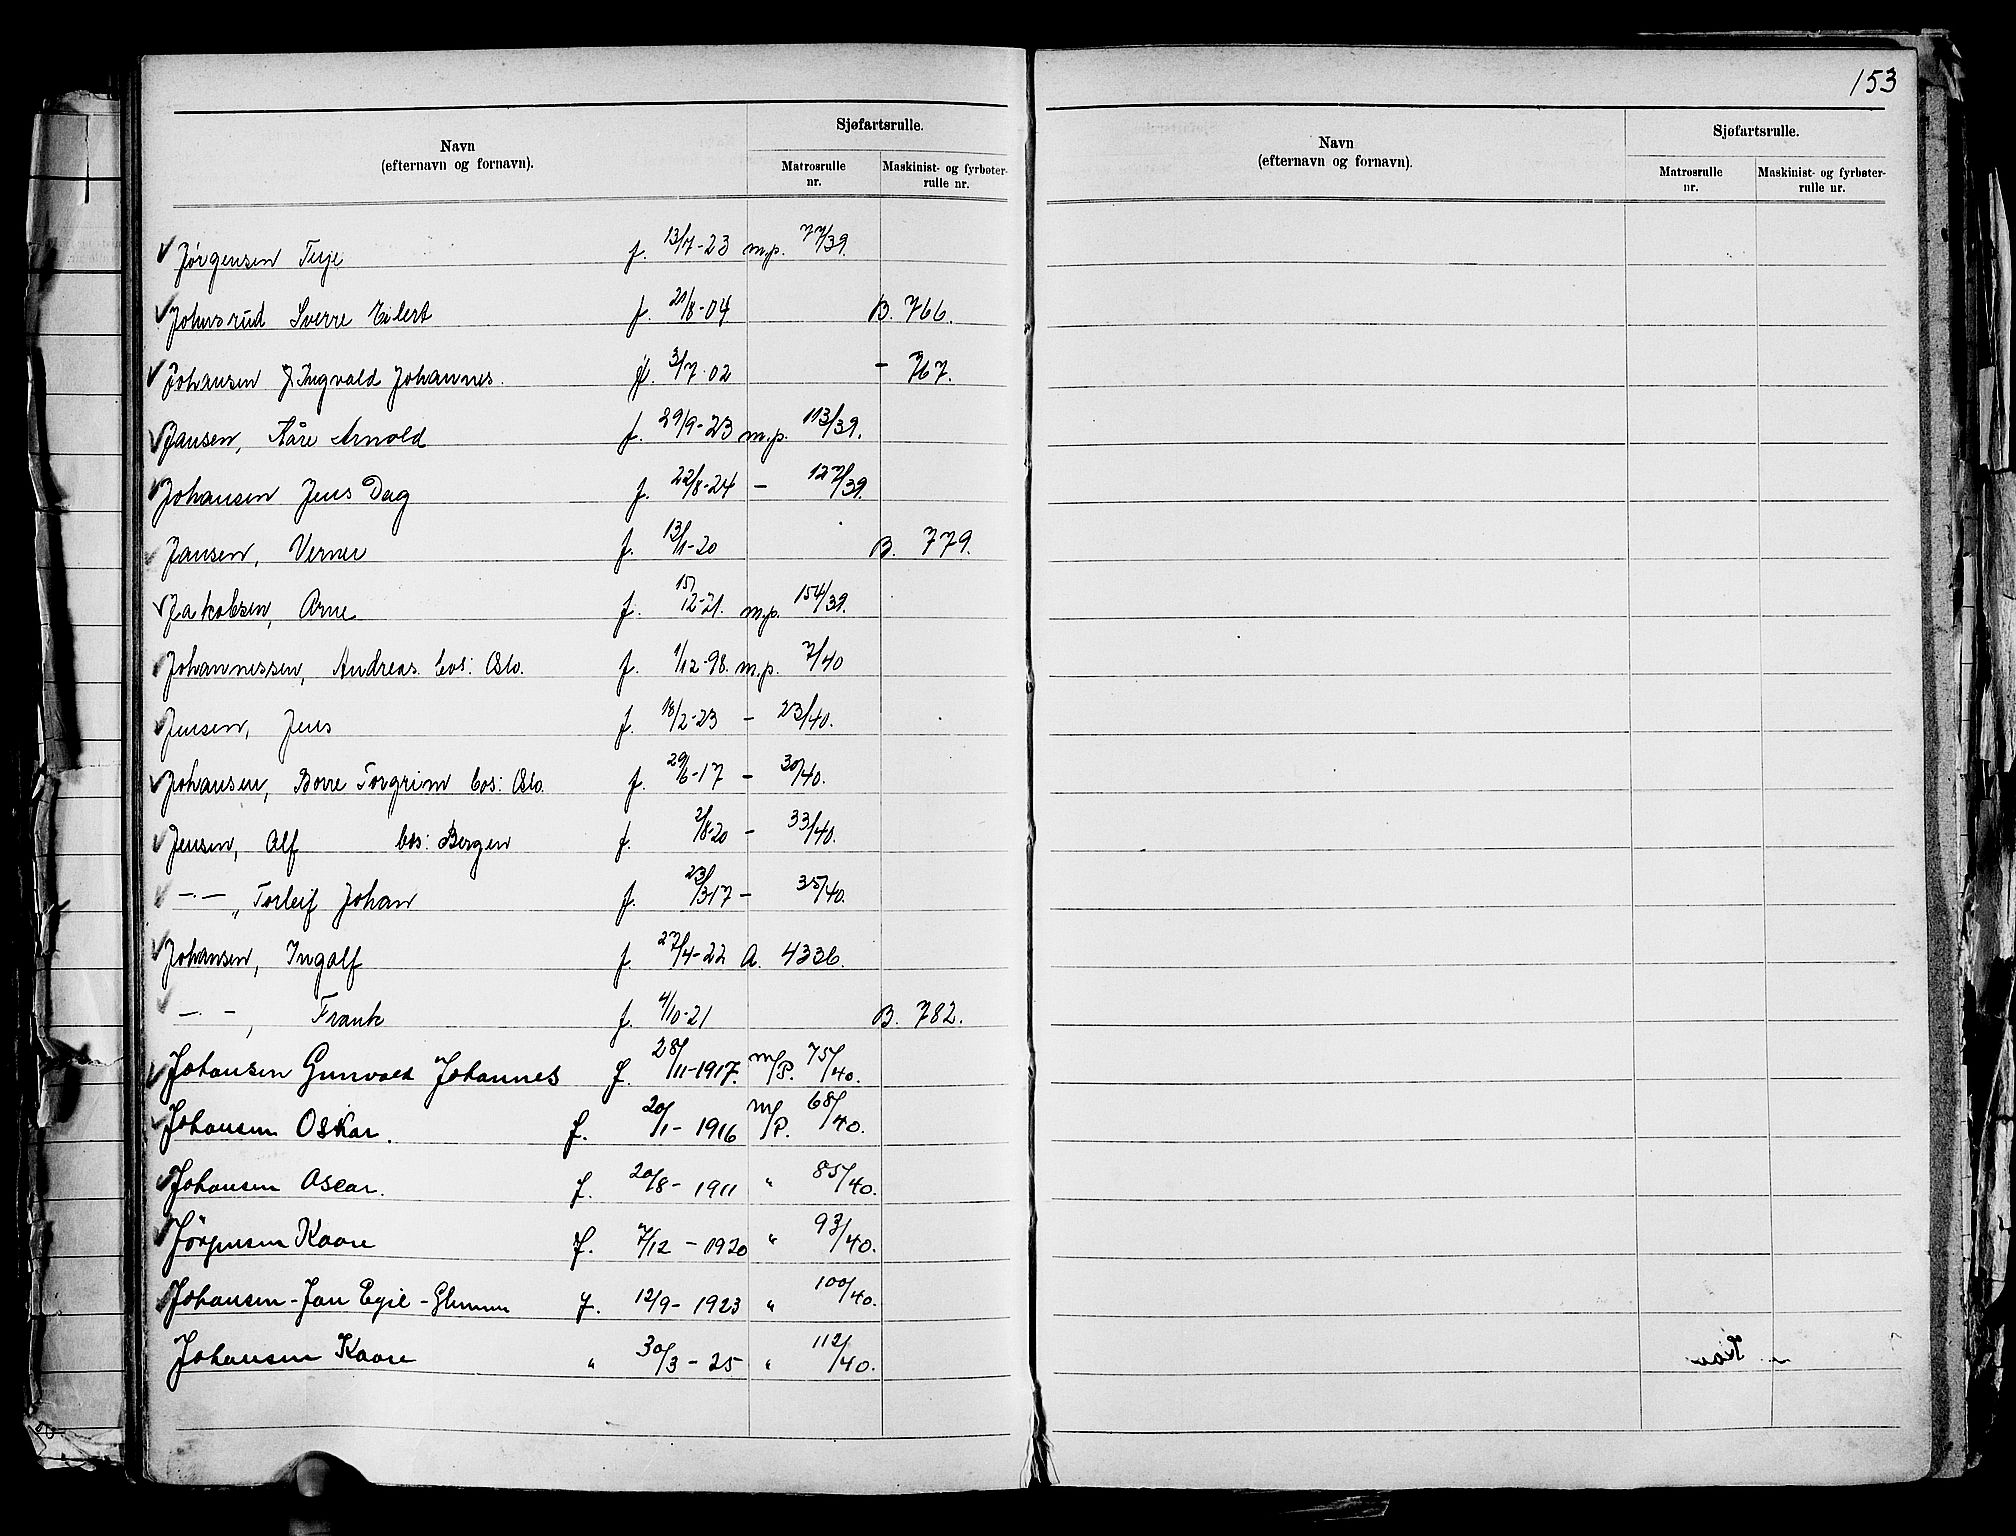 153
Navn
(efternavn og fornavn).
Sjøfartsrulle.
Matrosrulle
nr.
Maskinist- og fyrbøter-
rulle nr.
Jørgensen Terje f. 13/7-23 m.p. 77/39.
Johnsrud Sverre Eilert f. 21/8-04 B. 766.
Johansen Ingvald Johannes. f. 3/7-02 - 767.
Jansen, Kåre Arnold f. 29/9-23 m.p. 113/39.
Johansen Jens Dag f. 22/8-24 - 127/39.
Jansen, Verner f. 13/1-20 B. 779.
Jakobsen, Arne f. 15/12-21. m.p. 154/39.
Johannessen, Andreas. bos: Oslo. f. 1/12-98. m.p. 7/40
Jensen, Jens f. 18/2-23 - 23/40.
Johansen, Borre Torgrim bos: Oslo. f. 29/6-17 - 30/40.
Jensen, Alf bos: Bergen f. 2/8-20 - 33/40.
-"-, Torleif Johan f. 23/3-17 - 35/40.
Johansen, Ingolf f. 27/4-22 A. 4336.
-"-, Frank f. 4/10-21 B. 782.
Johansen Gunvald Johannes f. 28/11-1917. m/P. 75/40.
Johansen Oskar. f. 20/1-1916 m/P. 68/40.
Johansen Oscar. f. 20/8-1911 " 85/40.
Jörgensen Kaare f. 7/12-1920 " 93/40.
Johansen-Jan Egil- f. 12/9-1923 " 100/40.
Johansen Kaare " 30/3-25 " 112/40.
Navn
(efternavn og fornavn).
Sjøfartsrulle.
Matrosrulle
nr.
Maskinist- og fyrbøter-
rulle nr.